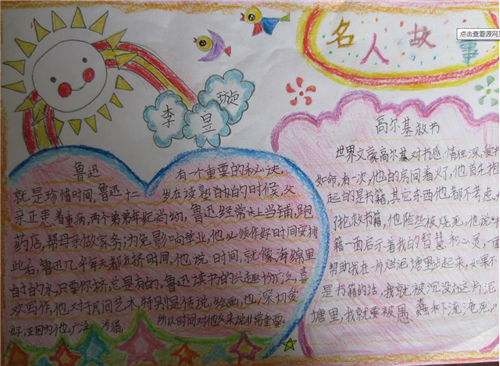 点击查看源网
名人故
李昱璇
鲁迅 有一个重要的秘诀,
就是珍惜时间,鲁迅十二岁在读私塾的时候,父
亲正患着重病,两个弟弟年纪尚幼,鲁迅经常上当铺,跑
药店,帮母亲做家务;为免影响学业,他必须作好时间安排
此后,鲁迅几乎每天都在挤时间,他说,时间,就像海绵里
的水,只要你挤,总是有的,鲁迅读书的兴趣十分广泛,喜
欢写作,他对于民间艺术,特别是传说、绘画,也深切爱
好,正因为他广泛涉猎 所以时间对他来说非常重要.
高尔基救书
世界文豪高尔基对书感情很深,爱书
如命,有一次,他的房间着火了,他首先抱
起的是书籍,其它东西他都不考虑,
抢救书籍,他险些被烧死,他说:书
籍一面启示着我的智慧和心灵,一面
帮助我在一片烂泥塘里站起来,如果不
是书籍的话,我就被沉没在这片泥
塘里,我就要被愚蠢和下流淹死